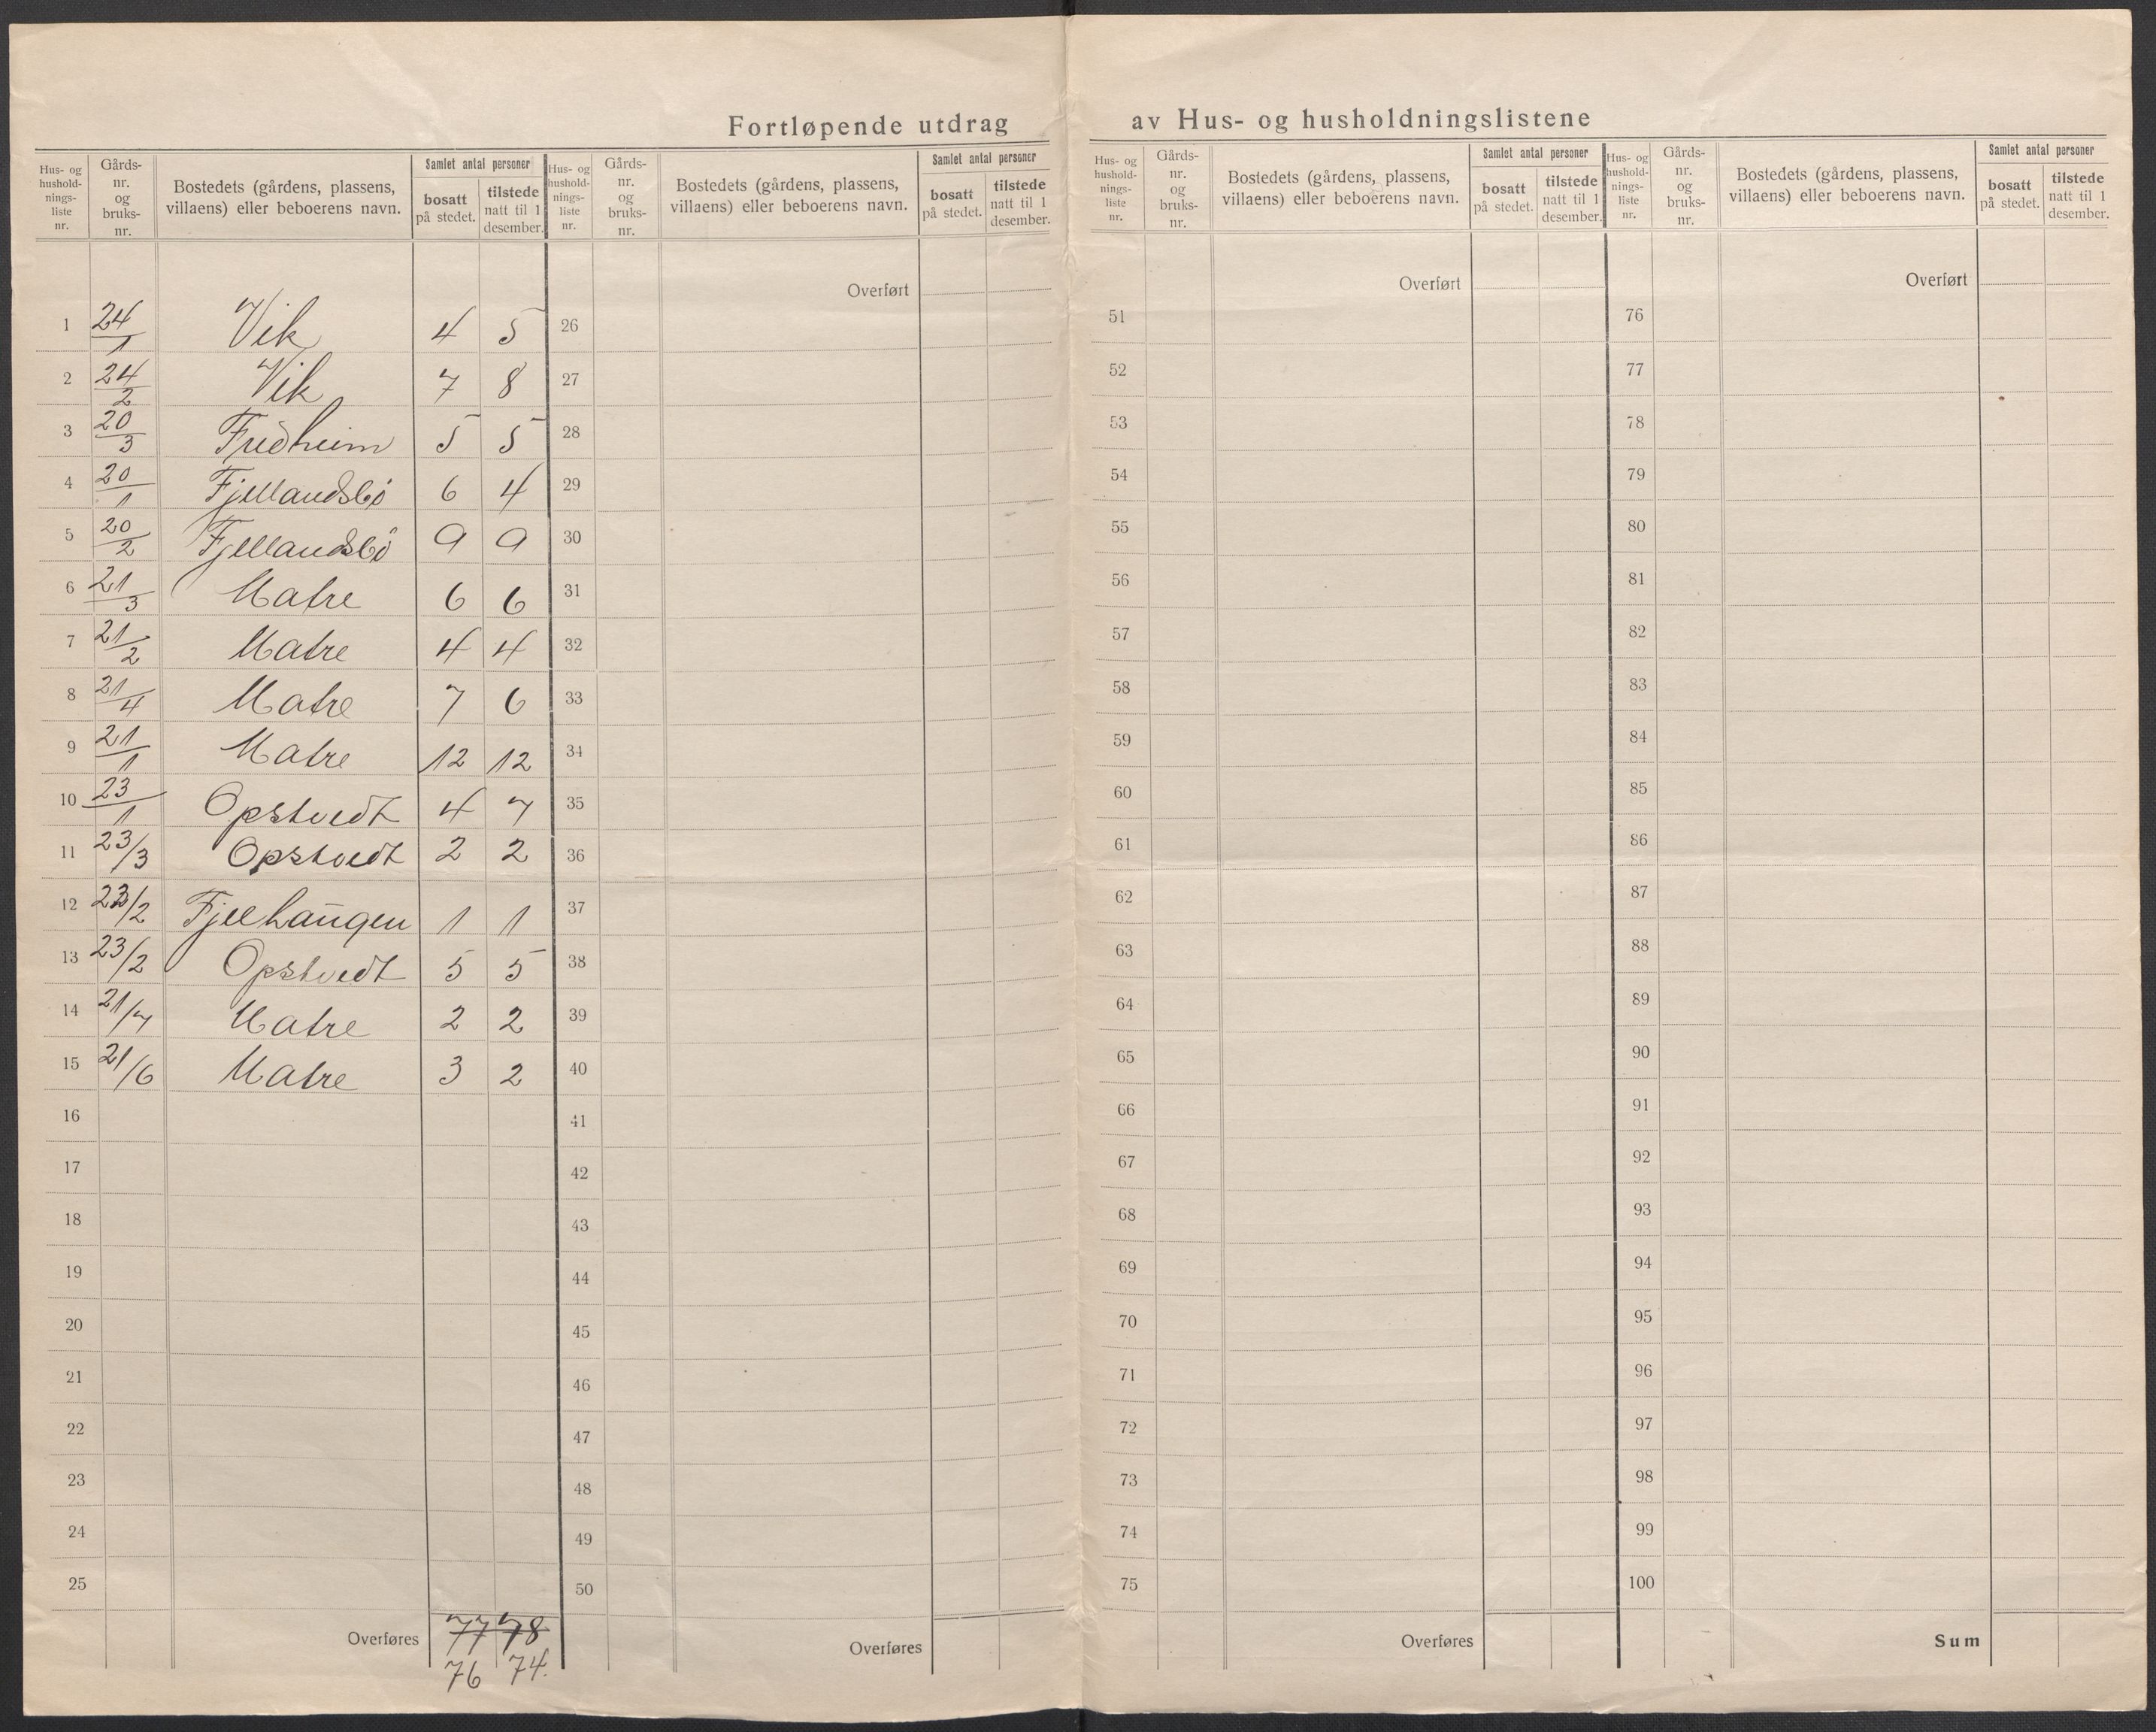 Fortløpende utdrag av Hus- og husholdningslistene
Hus- og hushold- nings- liste nr. | Gårds- nr. og bruks- nr. | Bostedets (gårdens, plassens, villaens) eller beboerens navn. | Samlet antal personer | bosatt på stedet. | tilstede natt til 1 desember.
1 24/1 Vik 4 5
2 24/2 Vik 7 8
3 20/3 Fredheim 5 5
4 20/1 Fjellandsbö 6 4
5 20/2 Fjellandsbö 9 9
6 21/3 Matre 6 6
7 21/2 Matre 4 4
8 21/4 Matre 7 6
9 21/1 Matre 12 12
10 23/1 Opstvedt 4 7
11 23/3 Opstvedt 2 2
12 23/2 Fjelhaugen 1 1
13 23/2 Opstvedt 5 5
14 21/7 Matre 2 2
15 21/6 Matre 3 2
16
17
18
19
20
21
22
23
24
25
Overføres 77 78
76 74.
Hus- og hushold- nings- liste nr. | Gårds- nr. og bruks- nr. | Bostedets (gårdens, plassens, villaens) eller beboerens navn. | Samlet antal personer | bosatt på stedet. | tilstede natt til 1 desember.
Overført
26
27
28
29
30
31
32
33
34
35
36
37
38
39
40
41
42
43
44
45
46
47
48
49
50
Overføres
Hus- og hushold- nings- liste nr. | Gårds- nr. og bruks- nr. | Bostedets (gårdens, plassens, villaens) eller beboerens navn. | Samlet antal personer | bosatt på stedet. | tilstede natt til 1 desember.
Overført
51
52
53
54
55
56
57
58
59
60
61
62
63
64
65
66
67
68
69
70
71
72
73
74
75
Overføres
Hus- og hushold- nings- liste nr. | Gårds- nr. og bruks- nr. | Bostedets (gårdens, plassens, villaens) eller beboerens navn. | Samlet antal personer | bosatt på stedet. | tilstede natt til 1 desember.
Overført
76
77
78
79
80
81
82
83
84
85
86
87
88
89
90
91
92
93
94
95
96
97
98
99
100
Sum